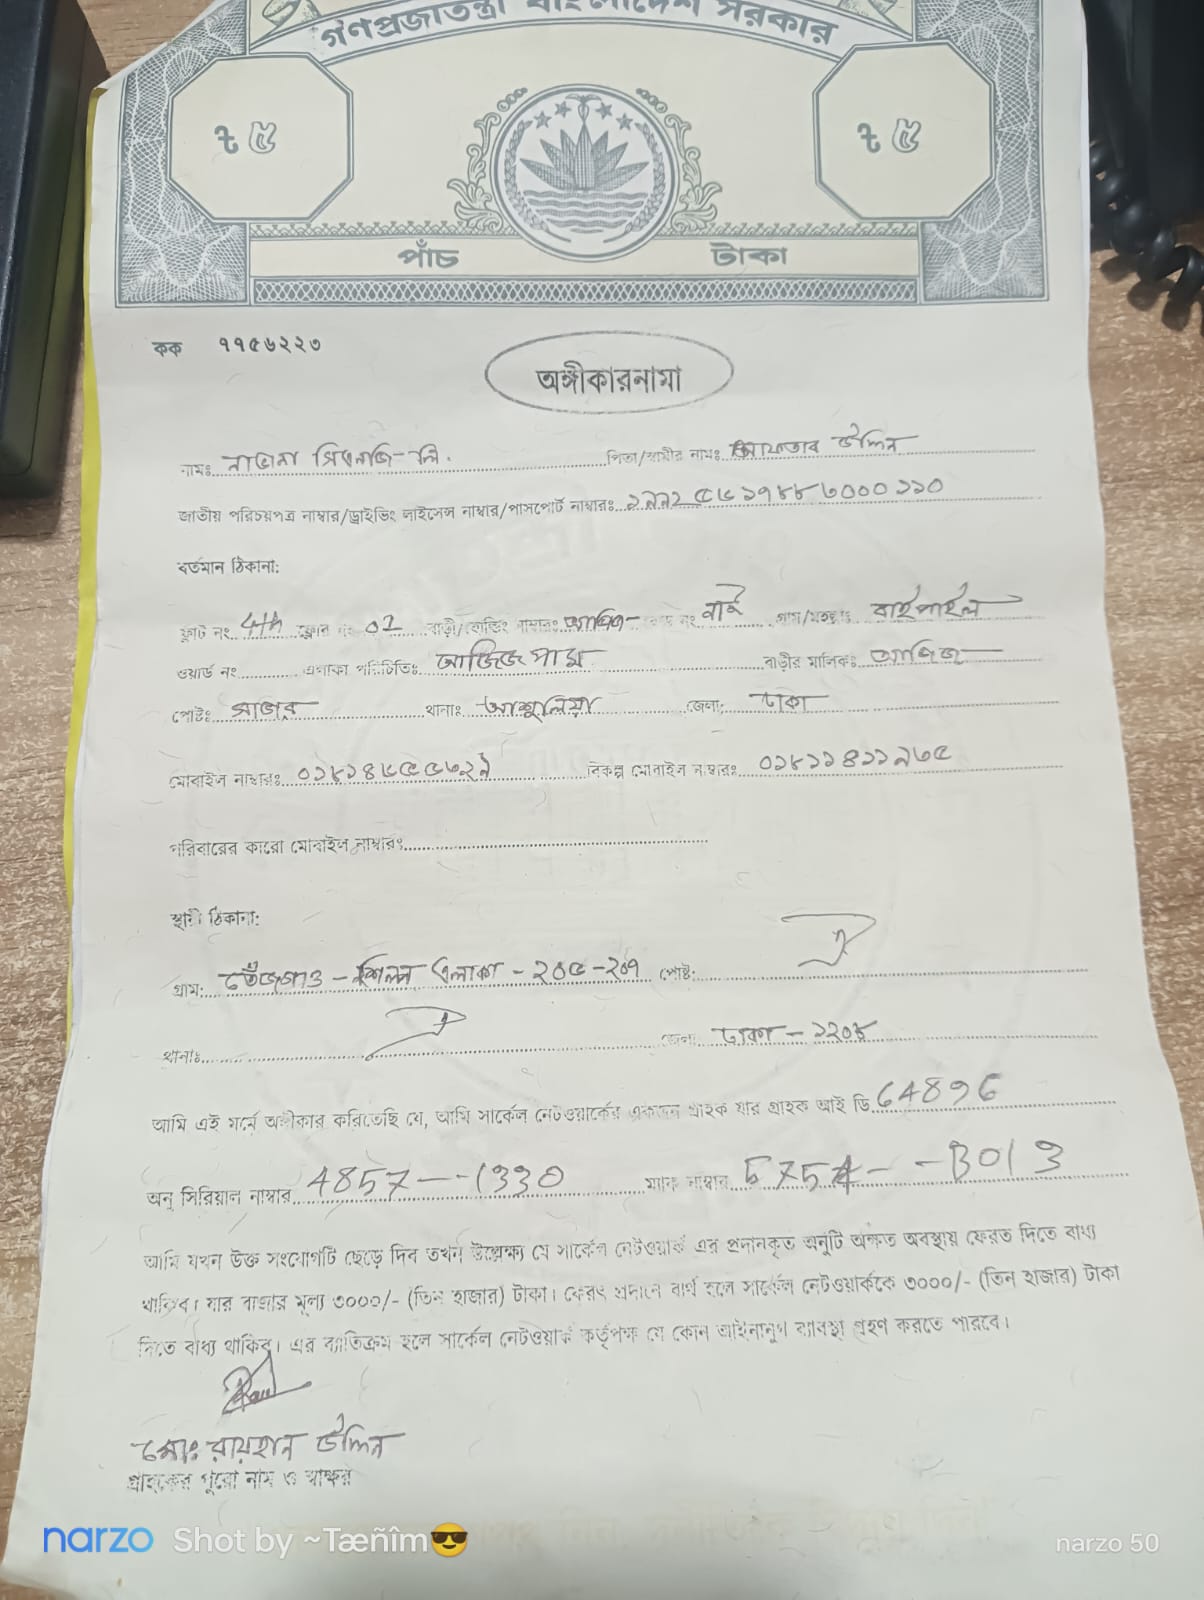 গণপ্রজাতন্ত্রী বাংলাদেশ সরকার
৳ ৫ ৳ ৫
পাঁচ টাকা
কক ৭৭৫৬২২৩
অঙ্গীকারনামা
নামঃ নাভানা সিএনজি-লি. পিতা/স্বামীর নামঃ আফতাব উদ্দিন
জাতীয় পরিচয়পত্র নাম্বার/ড্রাইভিং লাইসেন্স নাম্বার/পাসপোর্ট নাম্বারঃ
বর্তমান ঠিকানা:
ফ্লাট নং 4th ফ্লোর নং 01 বাড়ী/হোল্ডিং নাম্বারঃ রোড নং নাই গ্রাম/মহল্লাঃ বাইপাইল
ওয়ার্ড নং এলাকা পরিচিতিঃ আজিজ পাম্প বাড়ীর মালিকঃ আজিজ
পোষ্টঃ সাভার থানাঃ আশুলিয়া জেলা: ঢাকা
মোবাইল নাম্বারঃ বিকল্প মোবাইল নাম্বারঃ
পরিবারের কারো মোবাইল নাম্বারঃ
স্থায়ী ঠিকানা:
গ্রাম: তেঁজগাও - শিল্প এলাকা - ২০৫-২০৭ পোষ্ট:
থানাঃ জেলা ঢাকা - ১২০৮
আমি এই মর্মে অঙ্গীকার করিতেছি যে, আমি সার্কেল নেটওয়ার্কের একজন গ্রাহক যার গ্রাহক আই ডি 64896
অনু সিরিয়াল নাম্বার 4857---1330 ম্যাক নাম্বার 5754---B013
আমি যখন উক্ত সংযোগটি ছেড়ে দিব তখন উল্লেক্ষ্য যে সার্কেল নেটওয়ার্ক এর প্রদানকৃত অনুটি অক্ষত অবস্থায় ফেরত দিতে বাধ্য
থাকিব। যার বাজার মূল্য ৩০০০/- (তিন হাজার) টাকা। ফেরৎ প্রদানে ব্যর্থ হলে সার্কেল নেটওয়ার্ককে ৩০০০/- (তিন হাজার) টাকা
দিতে বাধ্য থাকিব। এর ব্যাতিক্রম হলে সার্কেল নেটওয়ার্ক কর্তৃপক্ষ যে কোন আইনানুগ ব্যাবস্থা গ্রহণ করতে পারবে।
মোঃ রায়হান উদ্দিন
গ্রাহকের পুরো নাম ও স্বাক্ষর
narzo Shot by ~Tæñîm😎 narzo 50